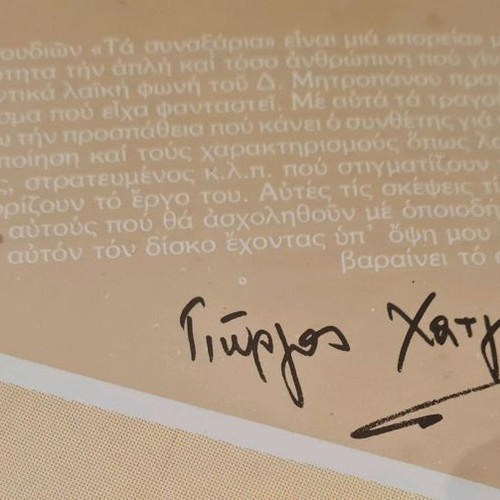 ουδιῶν «Τά συναξάρια» εἶναι μιά «πορεία»
ότητα τήν ἁπλή καί τόσο ἀνθρώπινη πού γίν
ντικά λαϊκή φωνή τοῦ Δ. Μητροπάνου πρα
σμα πού εἶχα φανταστεῖ. Μέ αὐτά τά τραγο
ω τήν προσπάθεια πού κάνει ὁ συνθέτης γιά
ποίηση καί τούς χαρακτηρισμούς ὅπως λα
ς, στρατευμένος κ.λ.π. πού στιγματίζουν
ορίζουν τό ἔργο του. Αὐτές τίς σκέψεις τί
αὐτούς πού θά ἀσχοληθοῦν μέ ὁποιοδή
αὐτόν τόν δίσκο ἔχοντας ὑπ' ὄψη μου
βαραίνει τό
Γιῶργος Χατζ